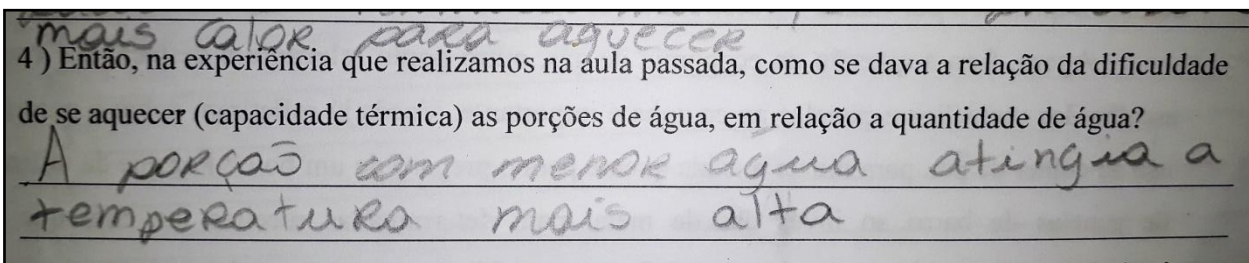 mais calor para aquecer
4 ) Então, na experiência que realizamos na aula passada, como se dava a relação da dificuldade
de se aquecer (capacidade térmica) as porções de água, em relação a quantidade de água?
A porçaõ com menor água atingia a
temperatura mais alta